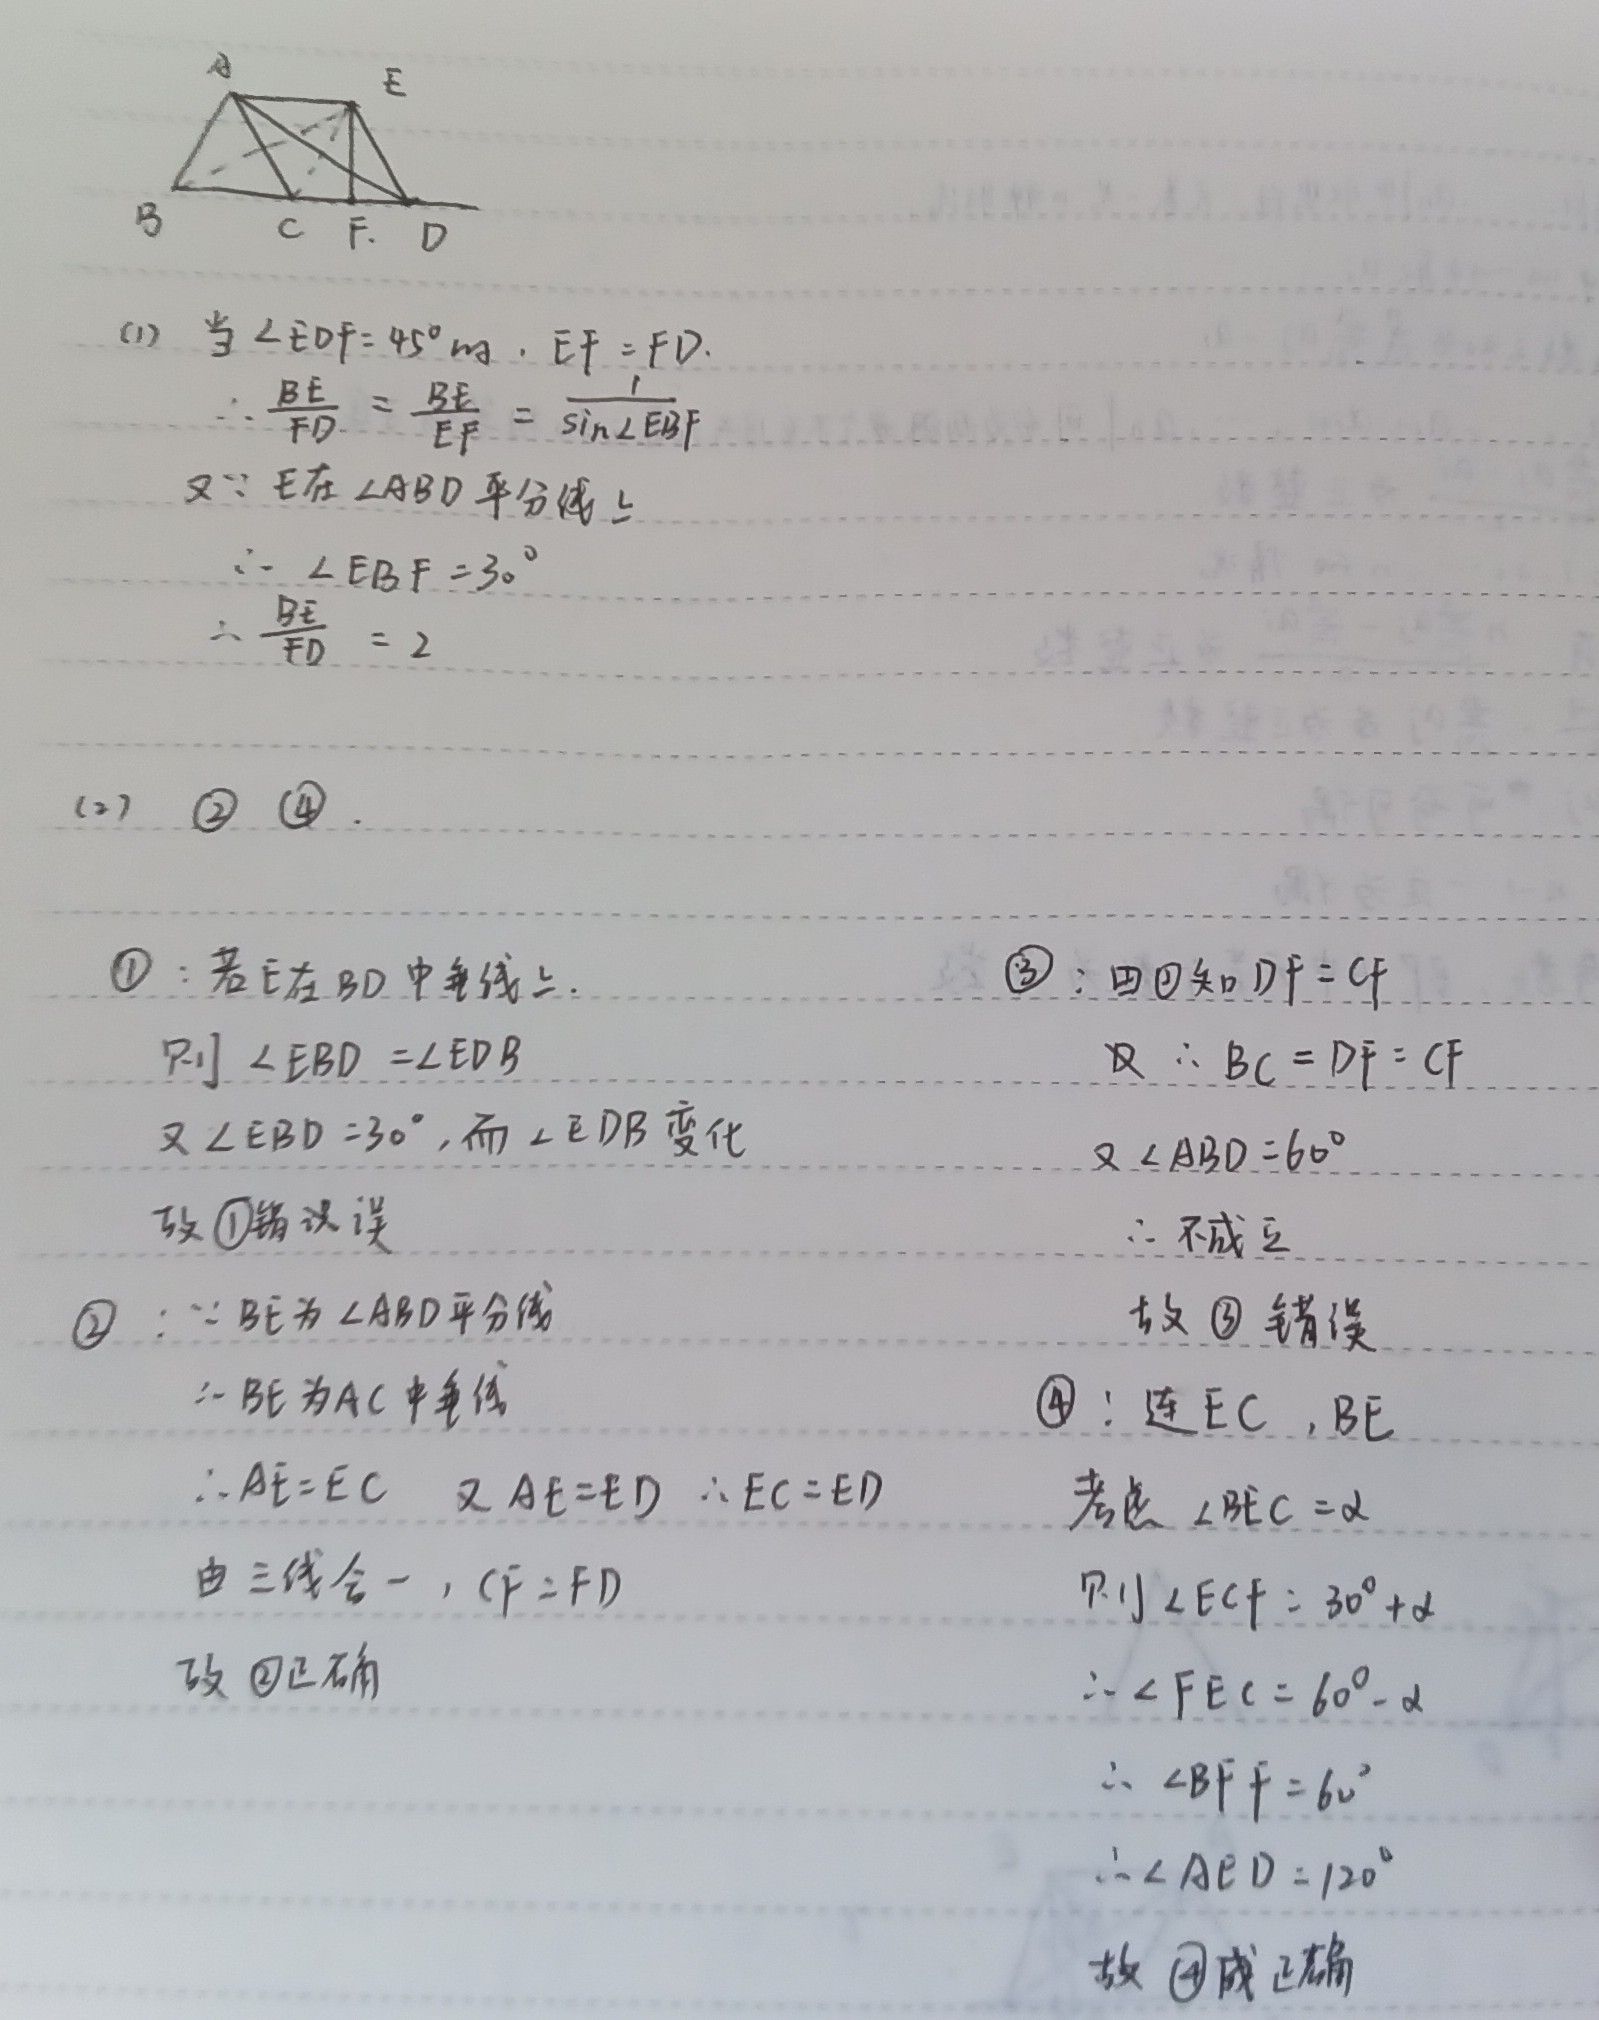 A
E
B
C
F.
D
(1) 当∠EDF=45°时, EF=FD.
∴ BE/FD = BE/EF = 1/sin∠EBF
又∵ E在∠ABD平分线上
∴ ∠EBF=30°
∴ BE/FD = 2
(2) ② ④.
①:若E在BD中垂线上.
则∠EBD=∠EDB
又∠EBD=30°,而∠EDB变化
故①错误
②:∵BE为∠ABD平分线
∴BE为AC中垂线
∴AE=EC 又AE=ED ∴EC=ED
由三线合一,CF=FD
故②正确
③:由②知DF=CF
又∴BC=DF=CF
又∠ABD=60°
∴不成立
故③错误
④:连EC,BE
考虑∠BEC=α
则∠ECF=30°+α
∴∠FEC=60°-α
∴∠BFF=60°
∴∠AED=120°
故④成正确